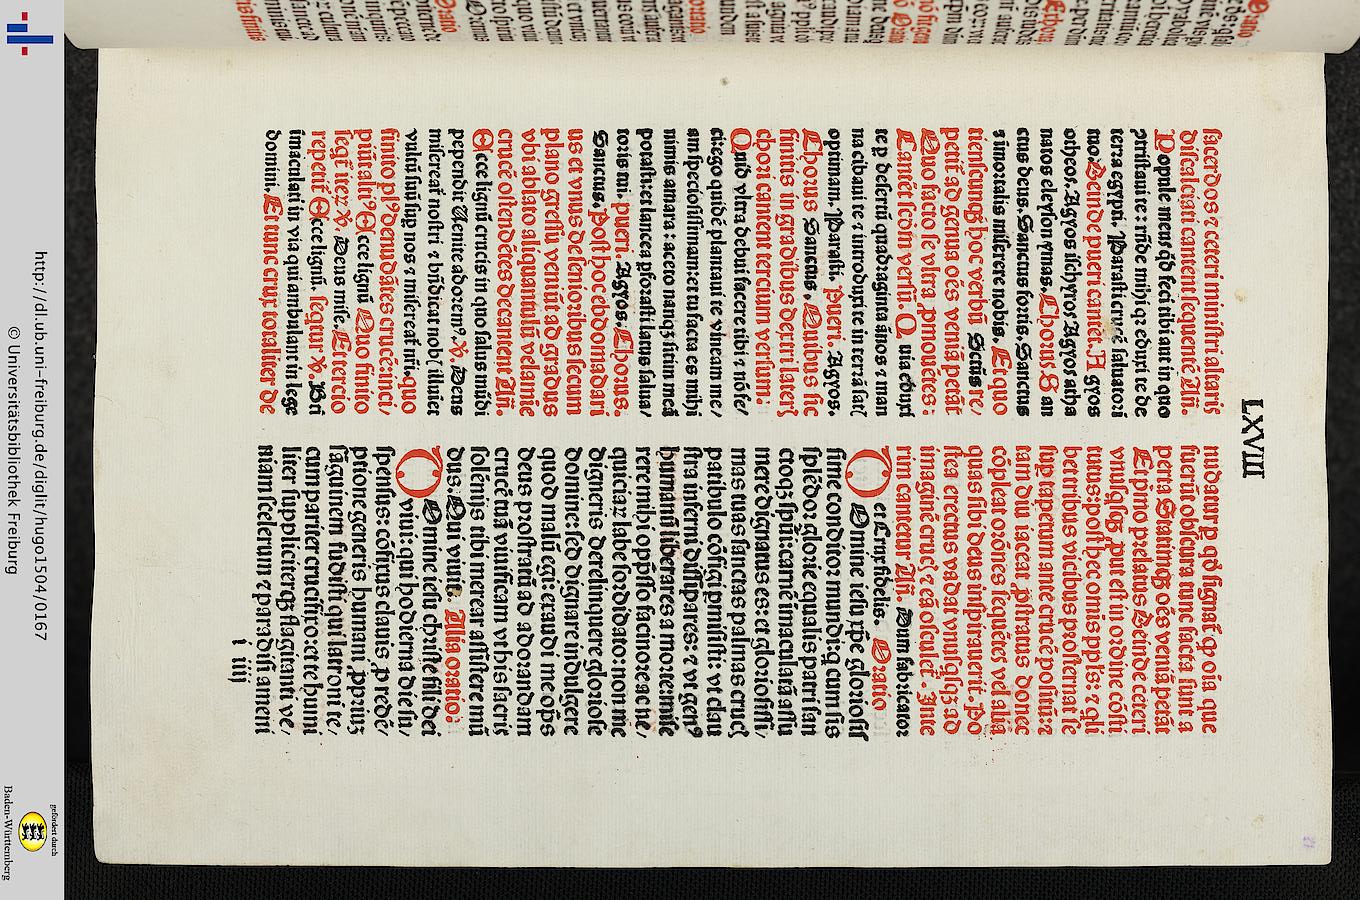 LXVIII
sacerdos et ceteri ministri altaris
discalciati cantent sequentē Añ.
Popule meus qd feci tibi aut in quo
terra egypti. Parasti crucē saluatori
tuo. Deinde pueri cantēt. Agyos
otheos. Agyos ischyros Agyos atha
natos eleyson ymas. Chorus San
ctus deus. Sanctus fortis. Sanctus
⁊ imortalis miserere nobis. Et quo
tienscunqʒ hoc verbū Sctūs re/
petit̄ ad genua oēs veniā petāt
Duo facto se vltra pmouētes:
Cantēt scdm versū. Quia eduxi
te p desertū quadraginta ānos ⁊ man
na cibaui te ⁊ introduxi te in terrā sat
optimam. Parasti. Pueri. Agyos.
Chorus Sanctus. Quibus sic
finitis in gradibus dextri lateris
chori cantent tercium versum:
Quid vltra debui facere tibi ⁊ nō fe/
ci: ego quidē plantaui te vineam me/
am speciosissimam: et tu facta es mihi
nimis amara: aceto nanqʒ sitim meā
potasti: et lancea pforasti latus salua/
toris tui. pueri. Agyos. Chorus.
Sanctus. Post hoc ebdomadari
us et vnus de senioribus secum
plano gressu veniūt ad gradus
vbi ablato aliquantulū velamie
crucē ostendētes decantent Añ.
Ecce lignū crucis in quo salus mūdi
pependit Uenite adorem⁹. V. Deus
misereat̄ nostri ⁊ bndicat nob illumet
vultū suū sup nos ⁊ misereat̄ nri. quo
finito pl⁹ denudātes crucē: inci/
piūt alt Ecce lignū Duo finito
legit̄ iterʒ V. Deus mise. Et tercio
repetit̄ Ecce lignū. seqtur V. Bti
imaculati in via qui ambulant in lege
domini. Et tunc crux totaliter de
nudatur p qd signat̄ qp oia que
fuerūt obscura tunc facta sunt a
perta Statimqʒ oēs veniā petāt
Et prīo prelatus Deinde ceteri
vnusqsqʒ put est in ordine cōsti
tutus: post hec comnis ppls: ⁊ qli
bet tribus vicibus prosternat se
sup tapetum ante crucē positū: ⁊
tam diu iaceat pstratus donec
cōpleat orōnes sequētes vel aliā
quas sibi deus inspirauerit. Po
stea erectus vadat vnusqsqʒ ad
imaginē crucis ⁊ eā osculet̄. Inte
rim cantetur Añ. Dum fabricator
et Crux fidelis. Oratio
Omine iesu xpe gloriosis
sime conditor mundi: q cum sis
splēdor glorie equalis patri san
ctoqʒ spui: carnē imaculatā assu
mere dignatus es: et gloriosissi/
mas tuas sanctas palmas crucis
patibulo cōfigi pmisisti: vt clau
stra inferni dissipares: ⁊ vt gen⁹
humanū liberares a morte: mise
rere mihi oppsso facinore ac ne/
quiciarʒ labe sordidato: non me
digneris derelinquere gloriose
domine: sed dignare indulgere
quod malū egi: exaudi me ops
deus prostratū ad adorandam
crucē tuā viuificam vt his sacris
solēnijs tibi merear assistere mū
dus: Qui viuis. Alia oratio:
Omine iesu christe fili dei
viui: qui hodierna die su/
spensus: cōfixus clauis p redē/
ptione generis humani pprium
sāguinem fudisti qui latroni te/
cum pariter crucifixo: et te humi
liter suppliciterqʒ flagitanti ve/
niam scelerum ⁊ paradisi ameni
i iiij
http://dl.ub.uni-freiburg.de/diglit/hugo1504/0167
© Universitätsbibliothek Freiburg
gefördert durch
Baden-Württemberg